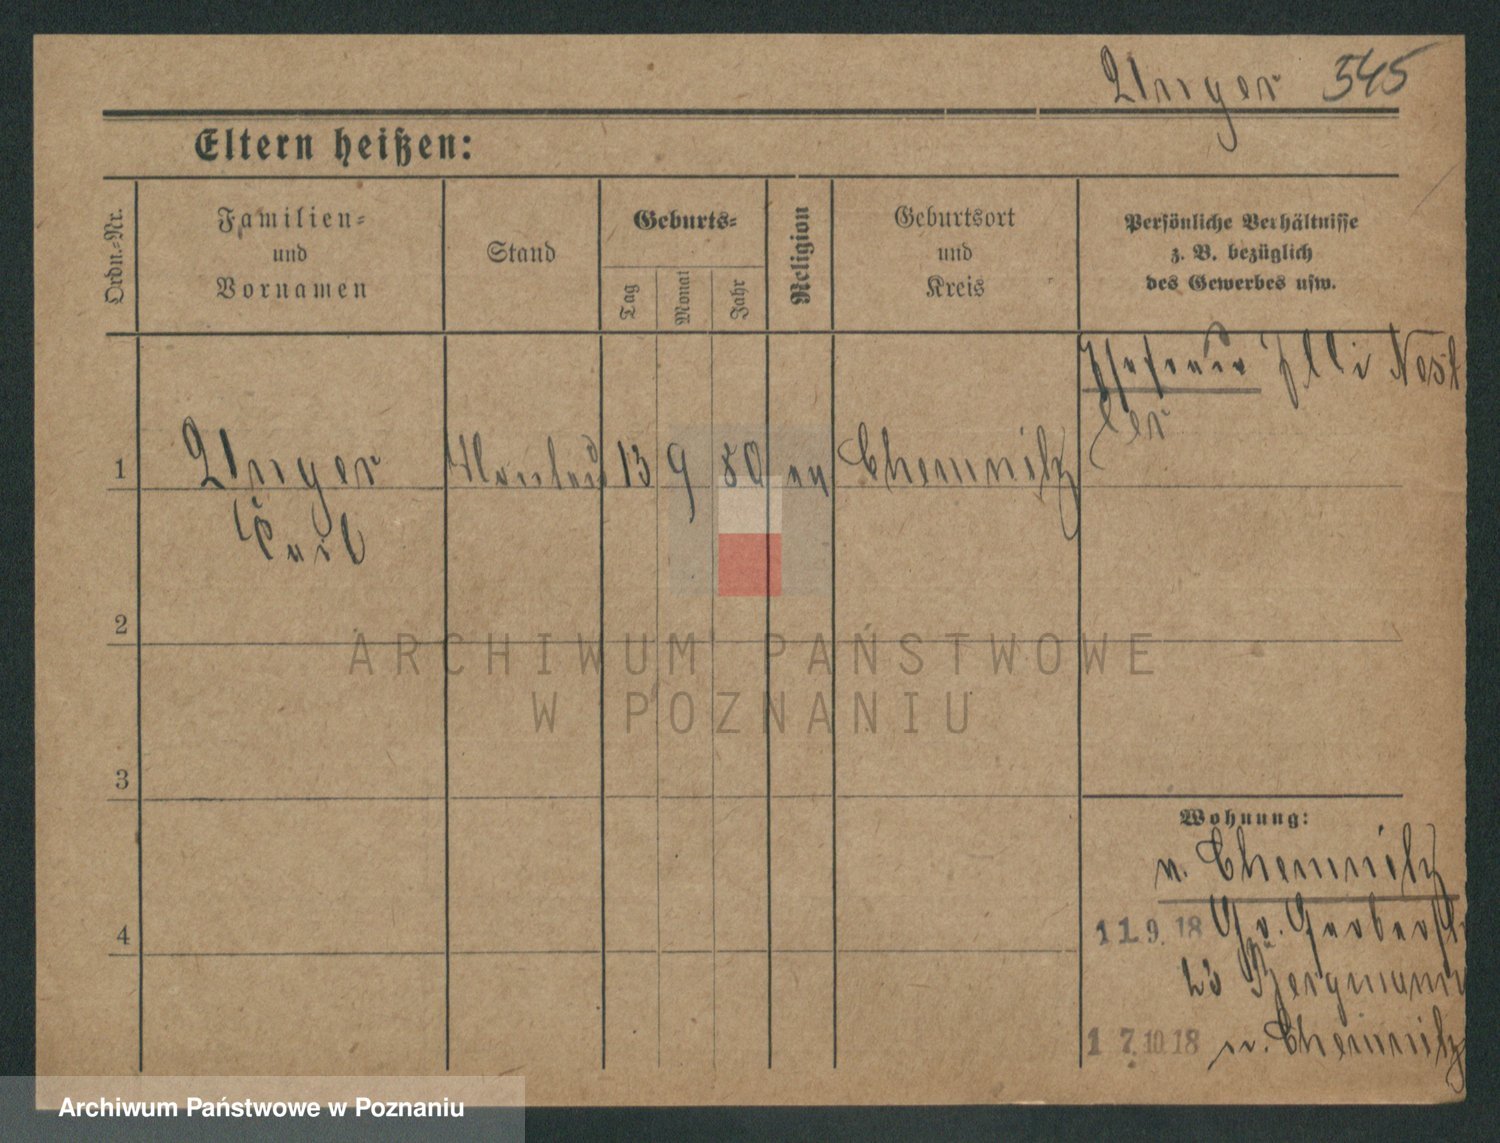 Unger 545
Eltern heißen:
Ordn.-Nr.
Familien-
und
Vornamen
Stand
Geburts-
Tag
Monat
Jahr
Religion
Geburtsort
und
Kreis
Persönliche Verhältnisse
z. B. bezüglich
des Gewerbes usw.
Ehefrau Elli Nest
ler
1 Unger 13 9 80 ev Chemnitz
2
3
4
Wohnung:
n. Chemnitz
11.9.18 Gr. Gerberst
23 Bergmann
17.10.18 n. Chemnitz
ARCHIWUM PAŃSTWOWE
W POZNANIU
Archiwum Państwowe w Poznaniu